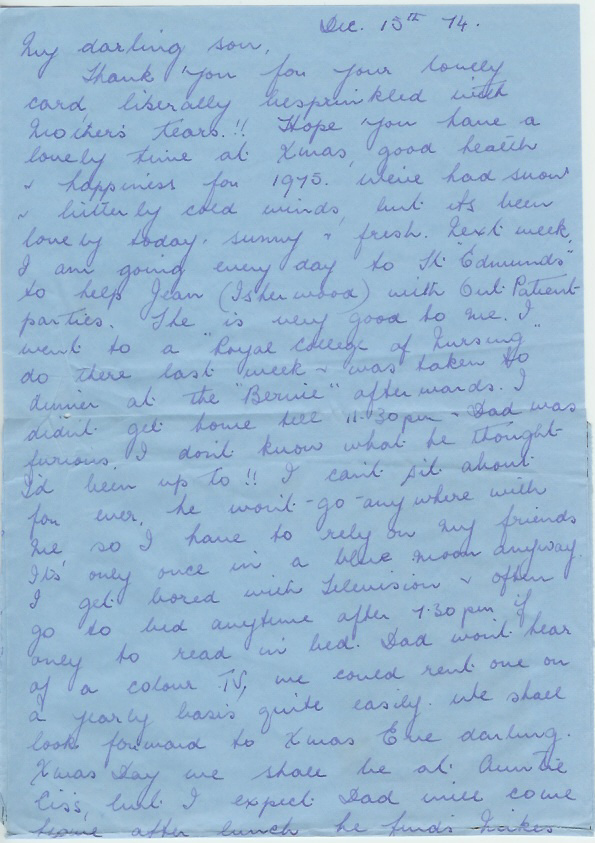 Dec. 15th 74.
My darling son,
Thank you for your lovely
card, liberally besprinkled with
Mothers tears.!! Hope you have a
lovely time at Xmas, good health
& happiness for 1975. We've had snow
& bitterly cold winds, but its been
lovely today. sunny & fresh. Next week,
I am going every day to St "Edmunds"
to help Jean (Isherwood) with Out Patient
parties. She is very good to me. I
went to a "Royal College of Nursing"
do there last week & was taken to
dinner at the "Bernie" afterwards. I
didn't get home till 11.30pm & Dad was
furious. I don't know what he thought
I'd been up to !! I can't sit about
for ever, he won't-go-anywhere with
me so I have to rely on my friends
It's only once in a blue moon anyway.
I get bored with Television & often
go to bed anytime after 7.30pm if
only to read in bed. Dad won't hear
of a colour TV, we could rent one on
a yearly basis quite easily. We shall
look forward to Xmas Eve darling.
Xmas Day we shall be at Auntie
Ciss, but I expect Dad will come
home after lunch he finds